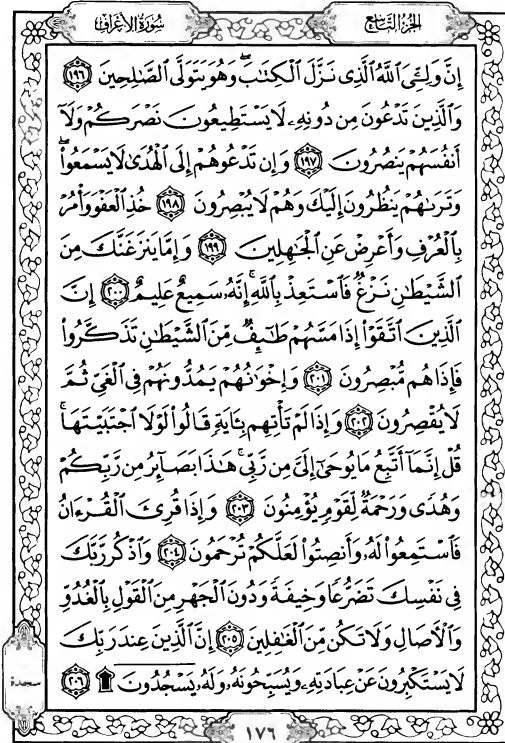 سُورَةُ الأَعْرَافِ
الجُزْءُ التَّاسِعُ
إِنَّ وَلِـِّۧيَ ٱللَّهُ ٱلَّذِى نَزَّلَ ٱلْكِتَٰبَ ۖ وَهُوَ يَتَوَلَّى ٱلصَّٰلِحِينَ ١٩٦
وَٱلَّذِينَ تَدْعُونَ مِن دُونِهِۦ لَا يَسْتَطِيعُونَ نَصْرَكُمْ وَلَآ
أَنفُسَهُمْ يَنصُرُونَ ١٩٧ وَإِن تَدْعُوهُمْ إِلَى ٱلْهُدَىٰ لَا يَسْمَعُوا۟ ۖ
وَتَرَىٰهُمْ يَنظُرُونَ إِلَيْكَ وَهُمْ لَا يُبْصِرُونَ ١٩٨ خُذِ ٱلْعَفْوَ وَأْمُرْ
بِٱلْعُرْفِ وَأَعْرِضْ عَنِ ٱلْجَٰهِلِينَ ١٩٩ وَإِمَّا يَنزَغَنَّكَ مِنَ
ٱلشَّيْطَٰنِ نَزْغٌ فَٱسْتَعِذْ بِٱللَّهِ ۚ إِنَّهُۥ سَمِيعٌ عَلِيمٌ ٢٠٠ إِنَّ
ٱلَّذِينَ ٱتَّقَوْا۟ إِذَا مَسَّهُمْ طَٰٓئِفٌ مِّنَ ٱلشَّيْطَٰنِ تَذَكَّرُوا۟
فَإِذَا هُم مُّبْصِرُونَ ٢٠١ وَإِخْوَٰنُهُمْ يَمُدُّونَهُمْ فِى ٱلْغَىِّ ثُمَّ
لَا يُقْصِرُونَ ٢٠٢ وَإِذَا لَمْ تَأْتِهِم بِـَٔايَةٍ قَالُوا۟ لَوْلَا ٱجْتَبَيْتَهَا ۚ
قُلْ إِنَّمَآ أَتَّبِعُ مَا يُوحَىٰٓ إِلَىَّ مِن رَّبِّى ۚ هَٰذَا بَصَآئِرُ مِن رَّبِّكُمْ
وَهُدًى وَرَحْمَةٌ لِّقَوْمٍ يُؤْمِنُونَ ٢٠٣ وَإِذَا قُرِئَ ٱلْقُرْءَانُ
فَٱسْتَمِعُوا۟ لَهُۥ وَأَنصِتُوا۟ لَعَلَّكُمْ تُرْحَمُونَ ٢٠٤ وَٱذْكُر رَّبَّكَ
فِى نَفْسِكَ تَضَرُّعًا وَخِيفَةً وَدُونَ ٱلْجَهْرِ مِنَ ٱلْقَوْلِ بِٱلْغُدُوِّ
وَٱلْءَاصَالِ وَلَا تَكُن مِّنَ ٱلْغَٰفِلِينَ ٢٠٥ إِنَّ ٱلَّذِينَ عِندَ رَبِّكَ
لَا يَسْتَكْبِرُونَ عَنْ عِبَادَتِهِۦ وَيُسَبِّحُونَهُۥ وَلَهُۥ يَسْجُدُونَ ۩ ٢٠٦
سجدة
١٧٦